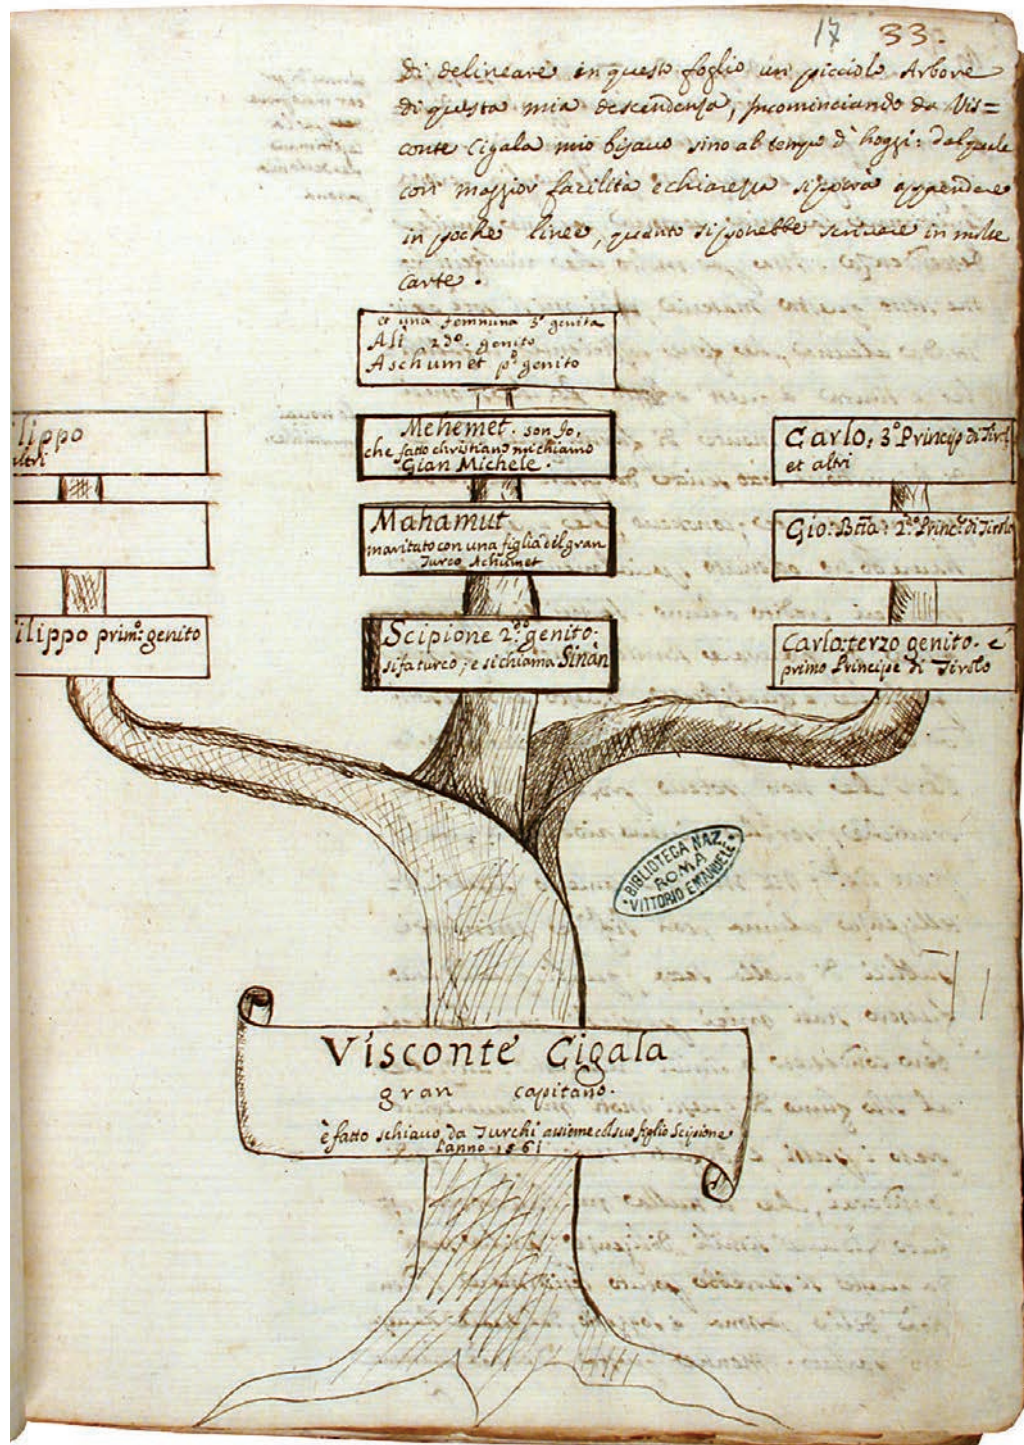 17 33.
di delineare in questo foglio un picciolo Arbore
di questa mia descendenza, Incominciando da Vis=
conte Cigala mio bisavo sino al tempo d'hoggi: dal quale
con maggior facilità e chiarezza si potrà apprendere
in poche linee, quanto si potrebbe scrivere in molte
carte.
et una femmina 3ª genita
Ali 2do. genito
Aschumet po. genito
lippo
altri
Mehemet. son Io,
che fatto christiano mi chiamo
Gian Michele.
Carlo: 3º Princip di Tirol
et altri
Mahamut
maritato con una figlia del gran
Turco Achumet
Gio: Btta: 2º: Princ: di Tirolo
ilippo primº: genito
Scipione 2º: genito:
si fa turco, e si chiama Sinan
Carlo: terzo genito. è
primo Principe di Tirolo
BIBLIOTECA NAZ.
ROMA
VITTORIO EMANUELE
Visconte Cigala
gran capitano.
è fatto schiavo da Turchi assieme col suo figlio Scipione
l'anno 1561